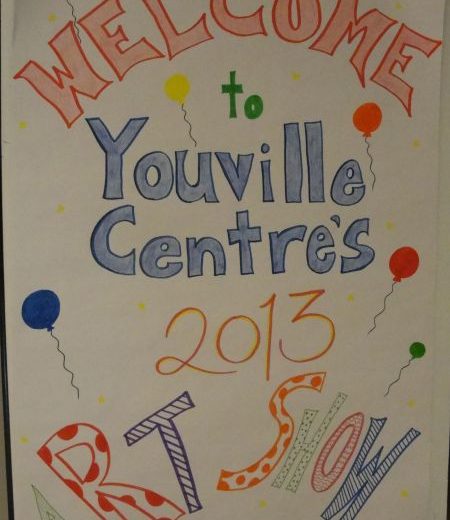 WELCOME
to
Youville
Centre's
2013
ART SHOW